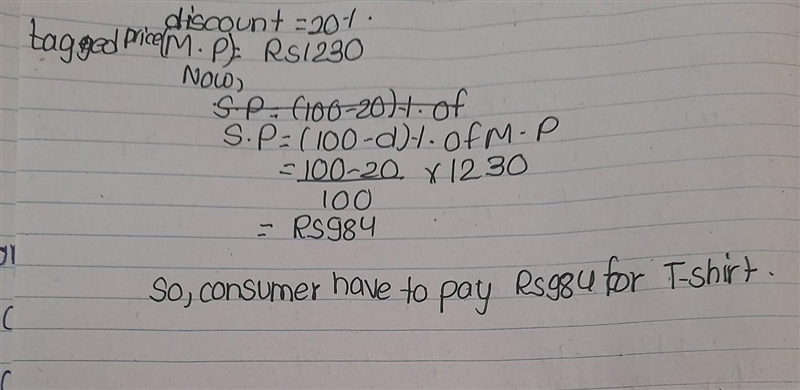 discount = 20%.
tagged price(M.P)= Rs1230
Now,
S.P = (100-20)%. of
S.P = (100-d)%. of M.P
= 100-20 × 1230
100
= Rs984
So, consumer have to pay Rs984 for T-shirt.